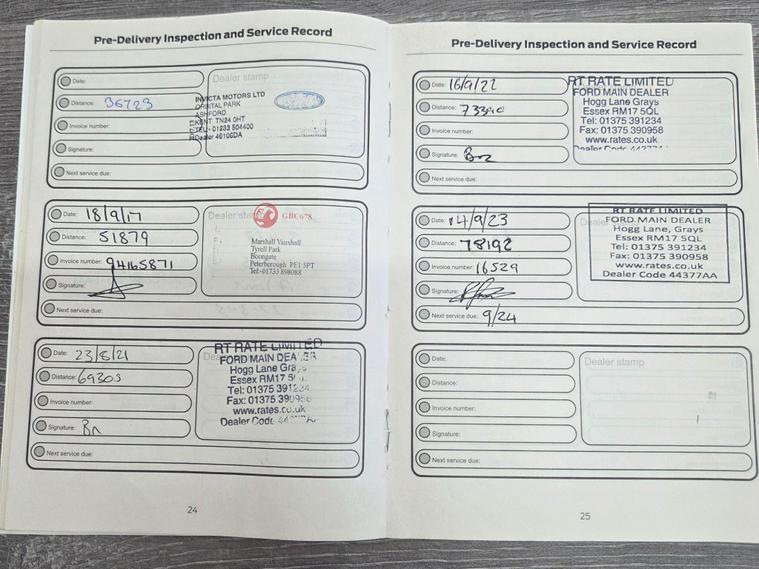 Pre-Delivery Inspection and Service Record
Date:
Dealer stamp
Distance: 36723
Invoice number:
Signature:
Next service due:
INVICTA MOTORS LTD
ORBITAL PARK
ASHFORD
KENT TN24 0HT
TEL: 01233 504400
Dealer 46100DA
Date: 18/9/17
Dealer stamp
GBC678
Distance: 51879
Invoice number: 94165871
Signature:
Next service due:
Marshall Vauxhall
Tyrell Park
Boongate
Peterborough PE1 5PT
Tel:-01733 898088
Date: 23/8/21
Distance: 69303
Invoice number:
Signature:
Next service due:
RT RATE LIMITED
FORD MAIN DEALER
Hogg Lane Grays
Essex RM17 5
Tel: 01375 391234
Fax: 01375 390958
www.rates.co.uk
Dealer Code
24
Pre-Delivery Inspection and Service Record
Date: 16/9/22
Distance:
Invoice number:
Signature:
Next service due:
RT RATE LIMITED
FORD MAIN DEALER
Hogg Lane Grays
Essex RM17 5QL
Tel: 01375 391234
Fax: 01375 390958
www.rates.co.uk
Dealer Code
Date: 14/9/23
Distance: 78192
Invoice number: 16529
Signature:
Next service due: 9/24
RT RATE LIMITED
FORD MAIN DEALER
Hogg Lane, Grays
Essex RM17 5QL
Tel: 01375 391234
Fax: 01375 390958
www.rates.co.uk
Dealer Code 44377AA
Date:
Dealer stamp
Distance:
Invoice number:
Signature:
Next service due:
25